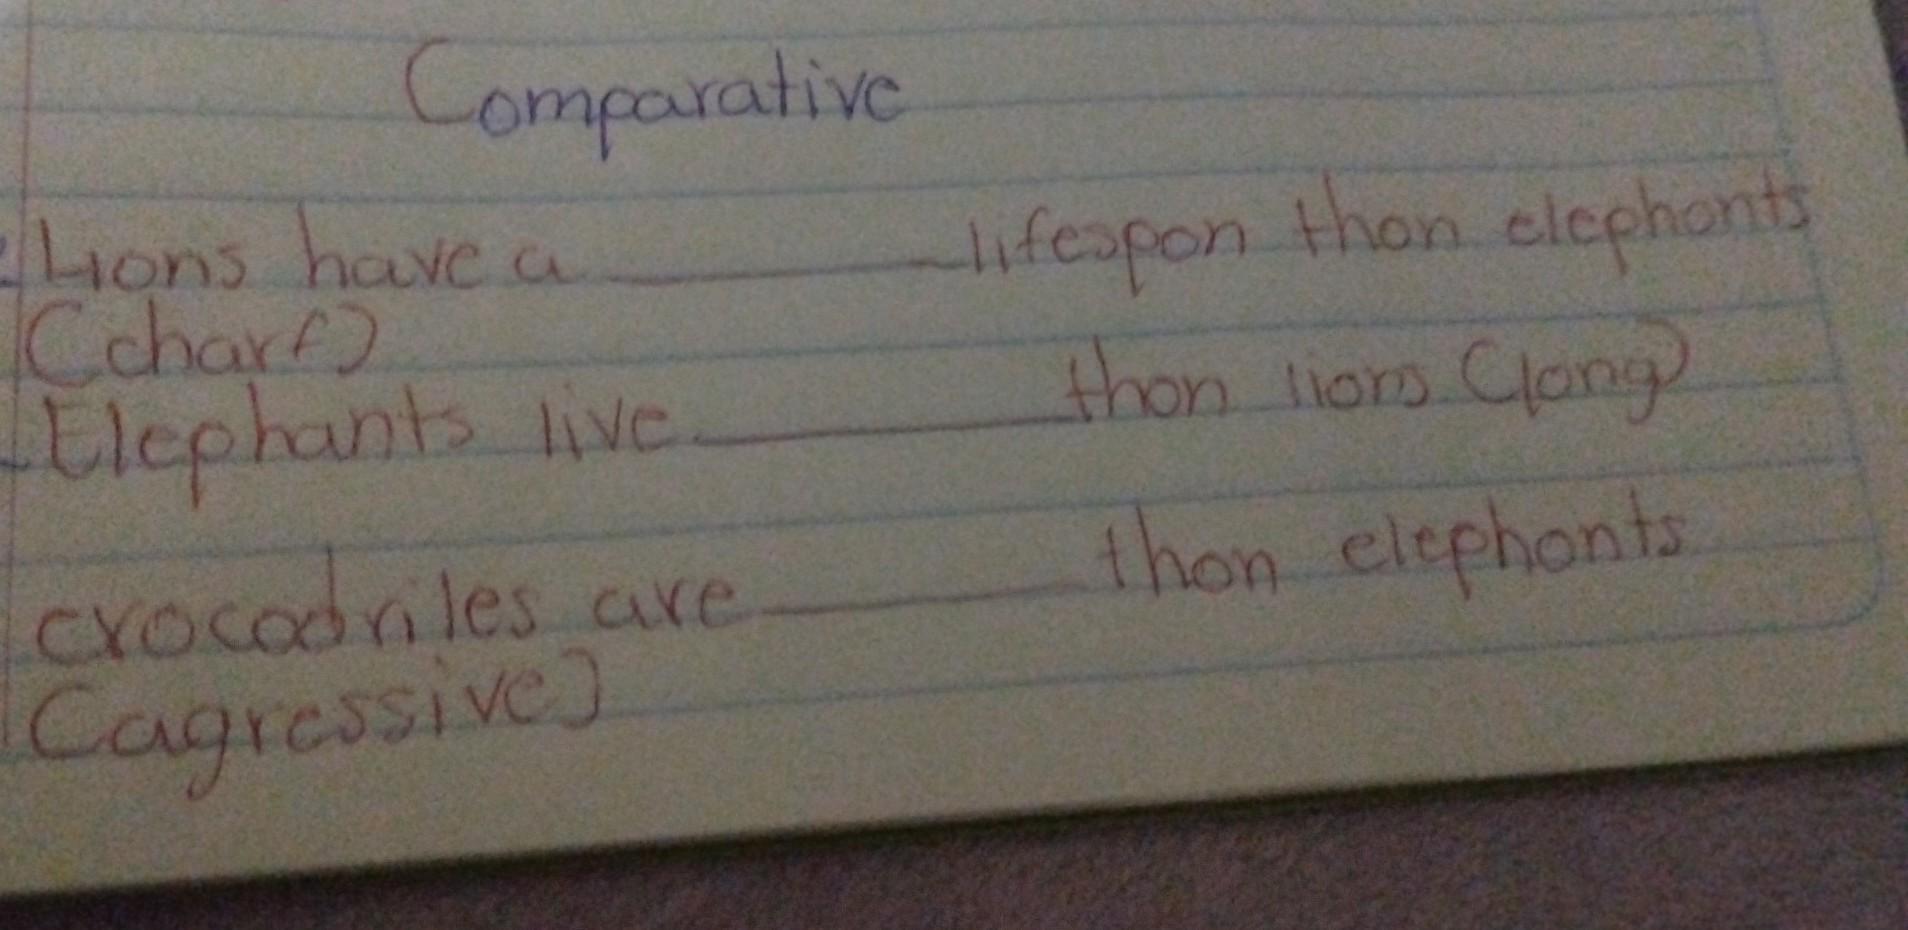 Comparative
Lions have a ________ lifespon thon elephonts
(chart)
Elephants live ________ thon lions (long)
crocodriles are ________ thon elephonts
(agressive)